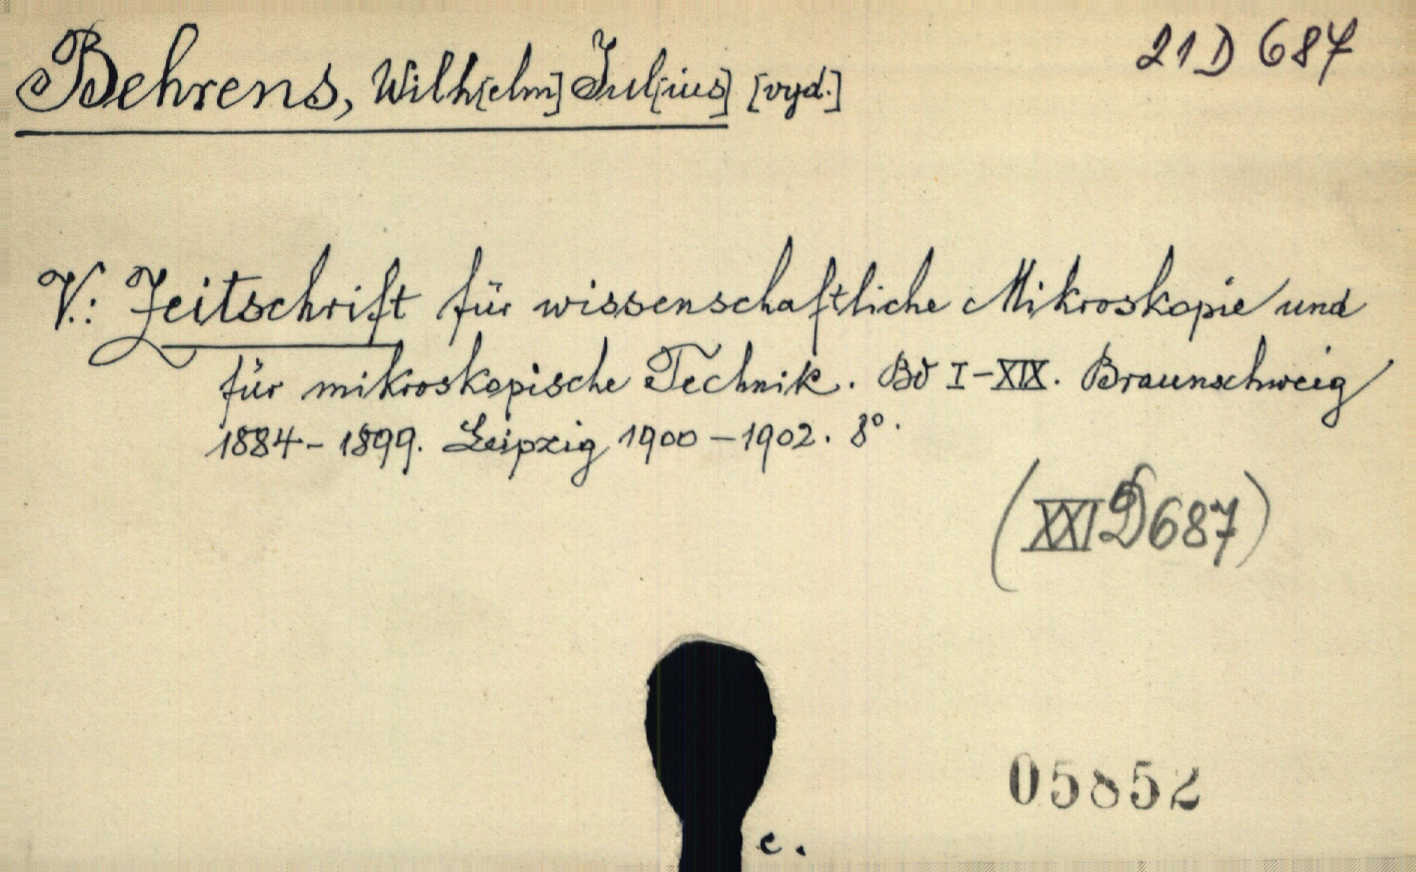 21 D 687
Behrens, Wilh[elm] Jul[ius] [vyd.]
V.: Zeitschrift für wissenschaftliche Mikroskopie und
für mikroskopische Technik. Bd I-XIX. Braunschweig
1884-1899. Leipzig 1900-1902. 8°.
(XXI D 687)
05852
c.